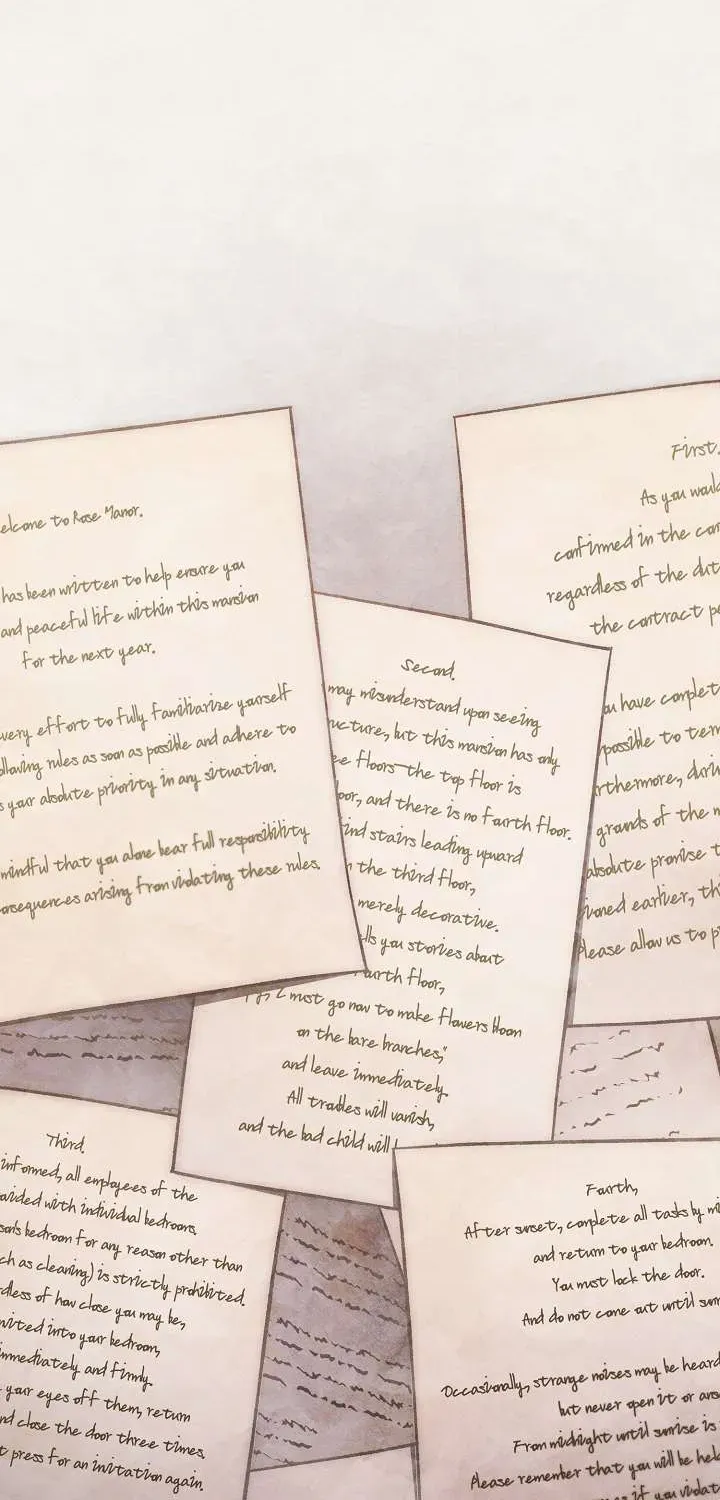 elcome to Rose Manor.
has been written to help ensure you
and peaceful life within this mansion
for the next year.
very effort to fully familiarize yourself
llowing rules as soon as possible and adhere to
s your absolute priority in any situation.
mindful that you alone bear full responsibility
onsequences arising from violating these rules.
First.
As you woul
confirmed in the con
regardless of the dut
the contract pe
ou have complet
possible to term
rthermore, durin
grounds of the m
absolute promise t
ioned earlier, thi
Please allow us to p
Second.
may misunderstand upon seeing
ructure, but this mansion has only
ee floors—the top floor is
loor, and there is no fourth floor.
find stairs leading upward
the third floor,
merely decorative.
lls you stories about
ourth floor,
I must go now to make flowers bloom
on the bare branches,"
and leave immediately.
All troubles will vanish,
and the bad child will
Third.
informed, all employees of the
ovided with individual bedrooms.
son's bedroom for any reason other than
ch as cleaning) is strictly prohibited.
rdless of how close you may be,
nvited into your bedroom,
immediately and firmly.
your eyes off them, return
nd close the door three times.
t press for an invitation again.
Fourth,
After sunset, complete all tasks by mi
and return to your bedroom.
You must lock the door.
And do not come out until sun
Occasionally, strange noises may be heard
but never open it or ans
From midnight until sunrise is
Please remember that you will be hel
if you violat